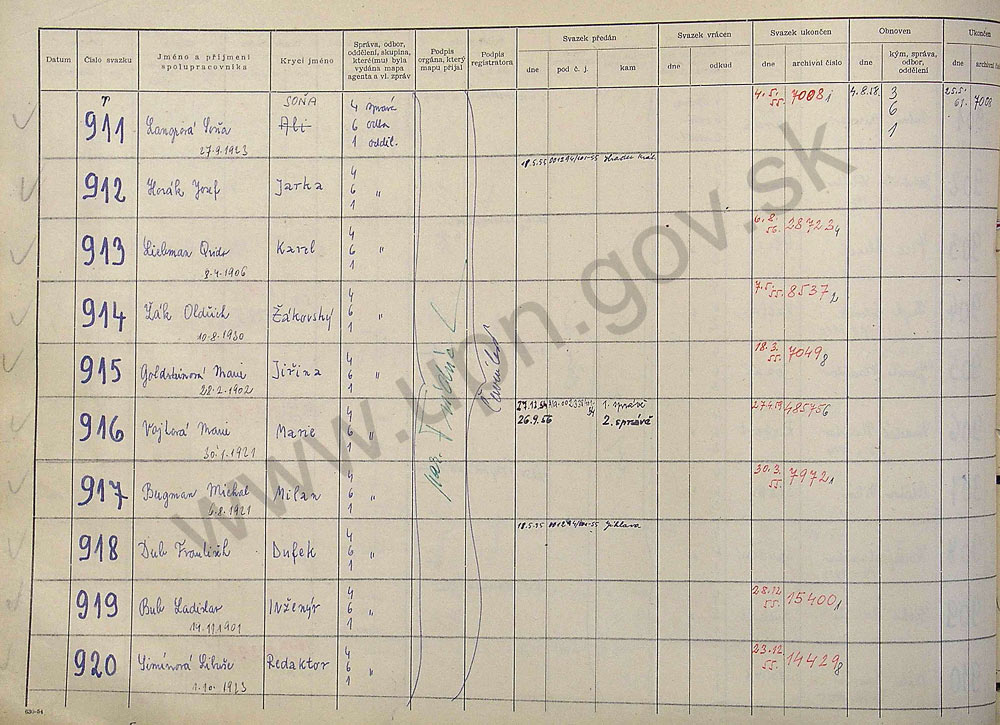 Datum
Číslo svazku
Jméno a příjmení
spolupracovníka
Krycí jméno
Správa, odbor,
oddělení, skupina,
které(mu) byla
vydána mapa
agenta a vl. zpráv
Podpis
orgána, který
mapu přijal
Podpis
registrátora
Svazek předán
dne
pod č. j.
kam
Svazek vrácen
dne
odkud
Svazek ukončen
dne
archivní číslo
Obnoven
dne
kým, správa,
odbor,
oddělení
Ukončen
dne
archivní
911
Soňa
27.9.1923
SOŇA
Ali
4 správa
6 odbor
1 odděl.
4.5.
55.
7008
4.8.58.
3
6
1
25.5.
7008
912
Horák Josef
Jarka
4
6 "
1
18.5.55
913
8.4.1906
Karel
4
6 "
1
6.8.
56.
28723
914
Žák Oldřich
10.8.1930
Žákovský
4
6 "
1
7.5.
55.
8537
915
Goldsteinová Marie
28.2.1902
Jiřina
4
6 "
1
18.3.
55.
7049
916
Vojtová Marie
30.1.1921
Marie
4
6 "
1
27.12.54
1. správě
26.9.56
2. správě
485756
917
Bergman Michal
6.8.1921
Milan
4
6 "
1
30.3.
55.
7972
918
Dub František
Dufek
4
6 "
1
18.5.55
Jihlava
919
Bub Ladislav
14.11.1901
Inženýr
4
6 "
1
28.12
55.
15400
920
Šimůnová Libuše
1.10.1923
Redaktor
4
6 "
1
23.12
55.
14429
630-54
www.upn.gov.sk